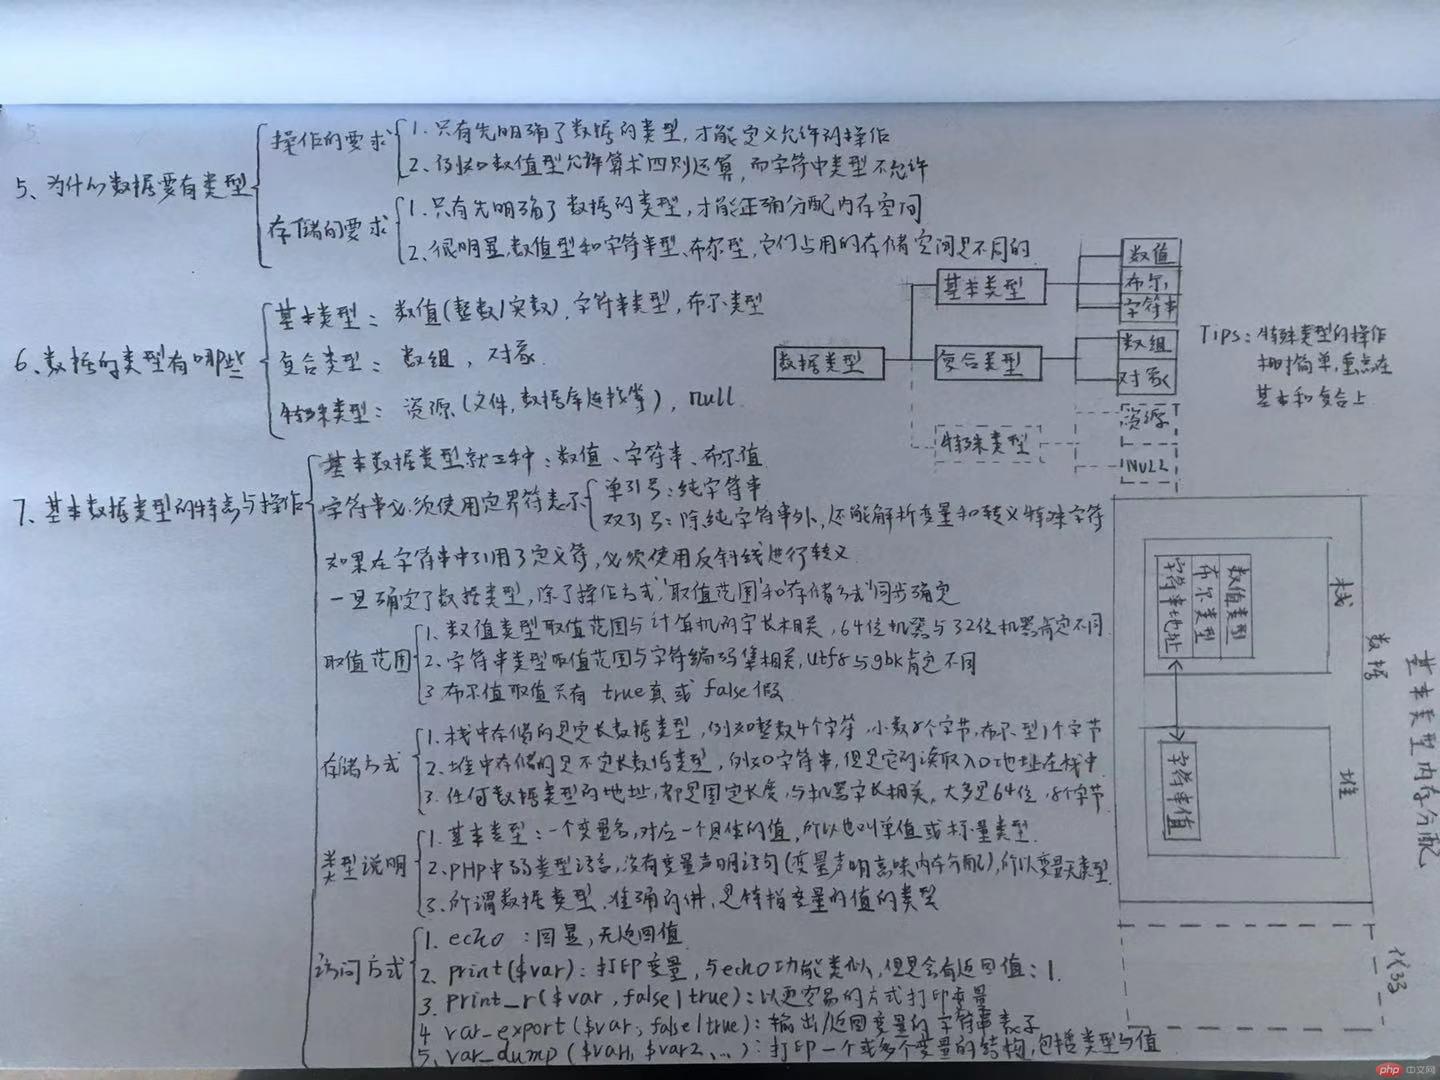 5、为什么数据要有类型
操作的要求
1.只有先明确了数据的类型,才能定义允许的操作
2.例如数值型允许算术四则运算,而字符中类型不允许
存储的要求
1.只有先明确了数据的类型,才能正确分配内存空间
2.很明显,数值型和字符串型、布尔型,它们占用的存储空间是不同的
6、数据的类型有哪些
基本类型:数值(整数/实数),字符串类型,布尔类型
复合类型:数组,对象.
特殊类型:资源(文件,数据库连接等),null.
数据类型
基本类型
数值
布尔
字符串
复合类型
数组
对象
特殊类型
资源
NULL
Tips:特殊类型的操作
相对简单,重点在
基本和复合上.
7、基本数据类型的特点与操作
基本数据类型就三种:数值、字符串、布尔值
字符串必须使用定界符表示
单引号:纯字符串
双引号:除纯字符串外,还能解析变量和转义特殊字符
如果在字符串中引用了定义符,必须使用反斜线进行转义
一旦确定了数据类型,除了操作方式,"取值范围"和"存储方式"同步确定
取值范围
1.数值类型取值范围与计算机的字长相关,64位机器与32位机器肯定不同
2.字符串类型取值范围与字符编码集相关,utf8与gbk肯定不同
3.布尔值取值只有 true真或 false假
存储方式
1.栈中存储的是定长数据类型,例如整数4个字符,小数8个字节,布尔型1个字节
2.堆中存储的是不定长数据类型,例如字符串,但是它的读取入口地址在栈中
3.任何数据类型的地址,都是固定长度,与机器字长相关,大多是64位,8个字节
类型说明
1.基本类型:一个变量名,对应一个具体的值,所以也叫单值或标量类型.
2.PHP中弱类型语言,没有变量声明语句(变量声明意味内存分配),所以变量无类型.
3.所谓数据类型,准确的讲,是特指变量的值的类型
访问方式
1.echo:回显,无返回值
2.print($var):打印变量,与echo功能类似,但是会有返回值:1.
3.print_r($var,false|true):以更容易的方式打印变量
4 var_export($var,false|true):输出/返回变量的字符串表示
5.var_dump($var1,$var2,...):打印一个或多个变量的结构,包括类型与值
基本类型内存分配
数据
栈
数值类型
布尔类型
字符串地址
堆
字符串值
代码
php 中文网